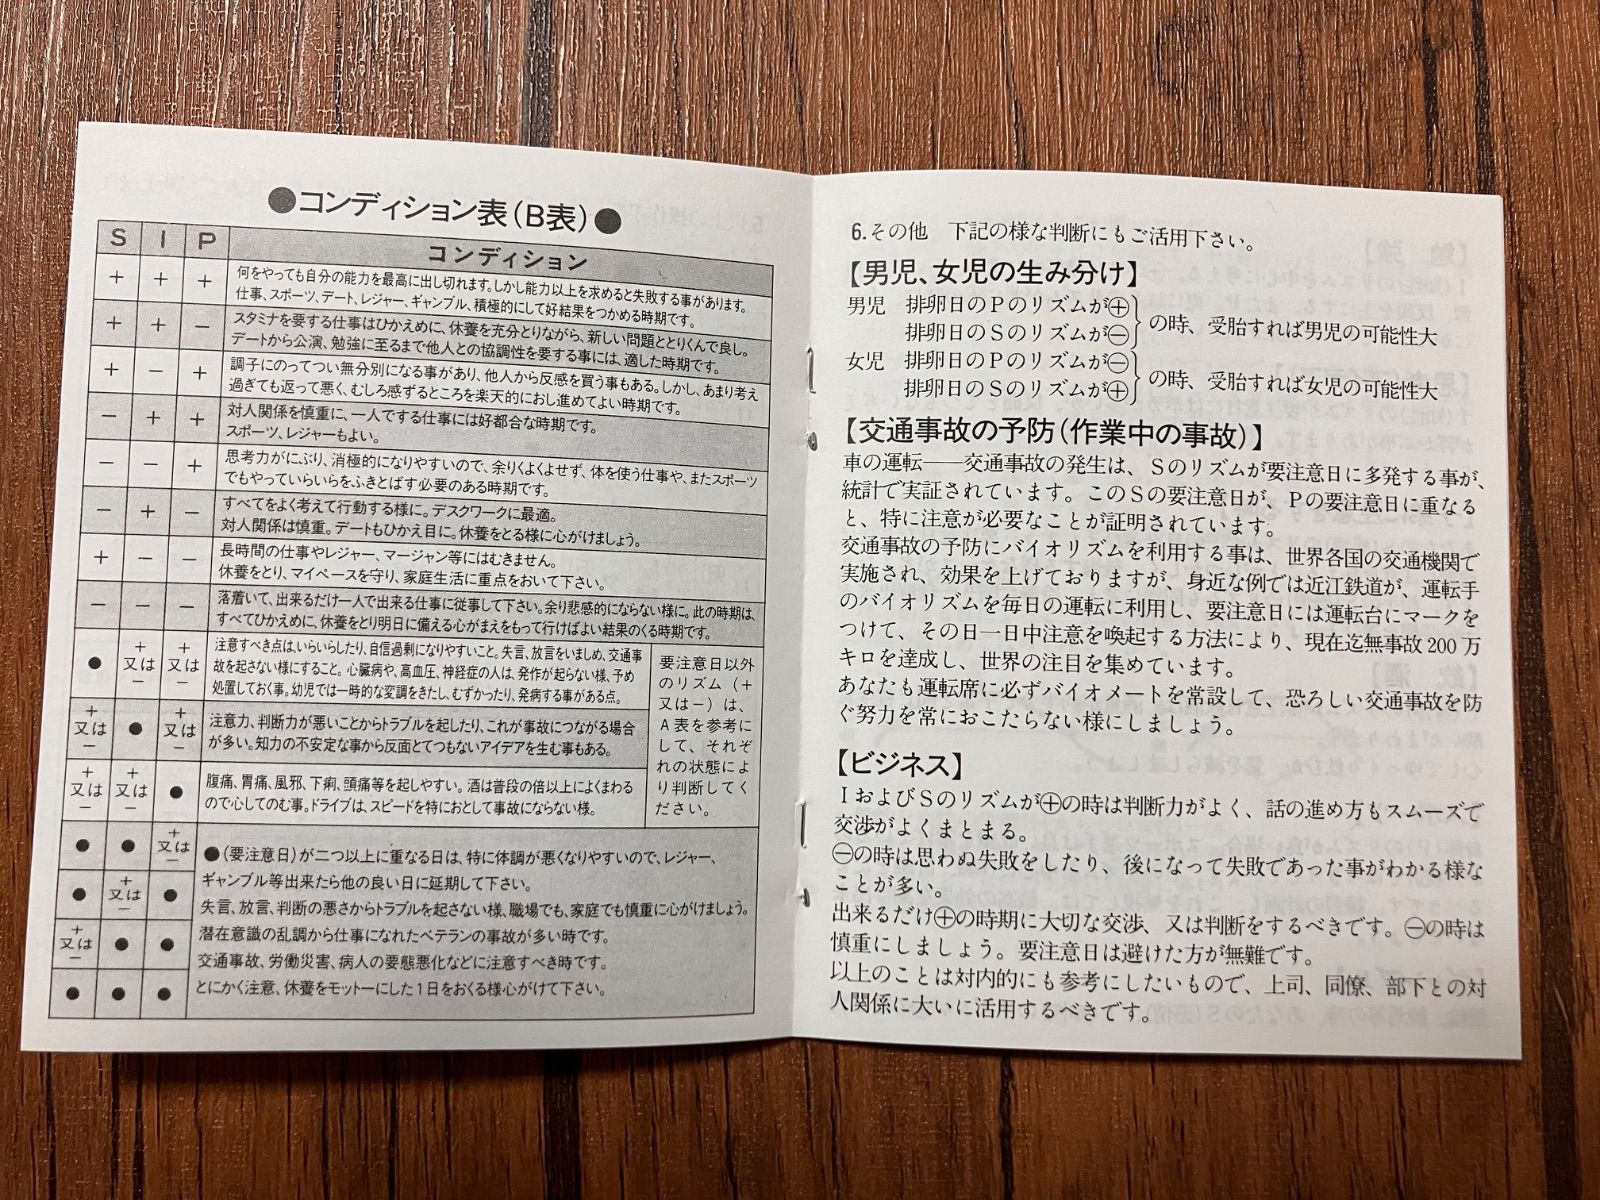 ●コンディション表(B表)●
S I P コンディション
+ + + 何をやっても自分の能力を最高に出し切れます。しかし能力以上を求めると失敗する事があります。
仕事、スポーツ、デート、レジャー、ギャンブル、積極的にして好結果をつかめる時期です。
+ + − スタミナを要する仕事はひかえめに、休養を充分とりながら、新しい問題ととりくんで良し。
デートから公演、勉強に至るまで他人との協調性を要する事には、適した時期です。
+ − + 調子にのってつい無分別になる事があり、他人から反感を買う事もある。しかし、あまり考え
過ぎても返って悪く、むしろ感ずるところを楽天的におし進めてよい時期です。
− + + 対人関係を慎重に、一人でする仕事には好都合な時期です。
スポーツ、レジャーもよい。
− − + 思考力がにぶり、消極的になりやすいので、余りくよくよせず、体を使う仕事や、またスポーツ
でもやっていらいらをふきとばす必要のある時期です。
− + − すべてをよく考えて行動する様に。デスクワークに最適。
対人関係は慎重。デートもひかえ目に。休養をとる様に心がけましょう。
+ − − 長時間の仕事やレジャー、マージャン等にはむきません。
休養をとり、マイペースを守り、家庭生活に重点をおいて下さい。
− − − 落着いて、出来るだけ一人で出来る仕事に従事して下さい。余り悲感的にならない様に。此の時期は、
すべてひかえめに、休養をとり明日に備える心がまえをもって行けばよい結果のくる時期です。
● +又は− +又は− 注意すべき点は、いらいらしたり、自信過剰になりやすいこと。失言、放言をいましめ、交通事
故を起さない様にすること。心臓病や、高血圧、神経症の人は、発作が起らない様、予め
処置しておく事。幼児では一時的な変調をきたし、むずかったり、発病する事がある点。
+又は− ● +又は− 注意力、判断力が悪いことからトラブルを起したり、これが事故につながる場合
が多い。知力の不安定な事から反面とてつもないアイデアを生む事もある。
+又は− +又は− ● 腹痛、胃痛、風邪、下痢、頭痛等を起しやすい。酒は普段の倍以上によくまわる
ので心してのむ事。ドライブは、スピードを特におとして事故にならない様。
要注意日以外
のリズム(+
又は−)は、
A表を参考に
して、それぞ
れの状態によ
り判断してく
ださい。
● ● +又は−
● +又は− ●
+又は− ● ●
● ● ●
●(要注意日)が二つ以上に重なる日は、特に体調が悪くなりやすいので、レジャー、
ギャンブル等出来たら他の良い日に延期して下さい。
失言、放言、判断の悪さからトラブルを起さない様、職場でも、家庭でも慎重に心がけましょう。
潜在意識の乱調から仕事になれたベテランの事故が多い時です。
交通事故、労働災害、病人の要態悪化などに注意すべき時です。
とにかく注意、休養をモットーにした1日をおくる様心がけて下さい。
6.その他 下記の様な判断にもご活用下さい。
【男児、女児の生み分け】
男児 排卵日のPのリズムが⊕
排卵日のSのリズムが㊀
の時、受胎すれば男児の可能性大
女児 排卵日のPのリズムが㊀
排卵日のSのリズムが⊕
の時、受胎すれば女児の可能性大
【交通事故の予防(作業中の事故)】
車の運転――交通事故の発生は、Sのリズムが要注意日に多発する事が、
統計で実証されています。このSの要注意日が、Pの要注意日に重なる
と、特に注意が必要なことが証明されています。
交通事故の予防にバイオリズムを利用する事は、世界各国の交通機関で
実施され、効果を上げておりますが、身近な例では近江鉄道が、運転手
のバイオリズムを毎日の運転に利用し、要注意日には運転台にマークを
つけて、その日一日中注意を喚起する方法により、現在迄無事故200万
キロを達成し、世界の注目を集めています。
あなたも運転席に必ずバイオメートを常設して、恐ろしい交通事故を防
ぐ努力を常におこたらない様にしましょう。
【ビジネス】
IおよびSのリズムが⊕の時は判断力がよく、話の進め方もスムーズで
交渉がよくまとまる。
㊀の時は思わぬ失敗をしたり、後になって失敗であった事がわかる様な
ことが多い。
出来るだけ⊕の時期に大切な交渉、又は判断をするべきです。㊀の時は
慎重にしましょう。要注意日は避けた方が無難です。
以上のことは対内的にも参考にしたいもので、上司、同僚、部下との対
人関係に大いに活用するべきです。